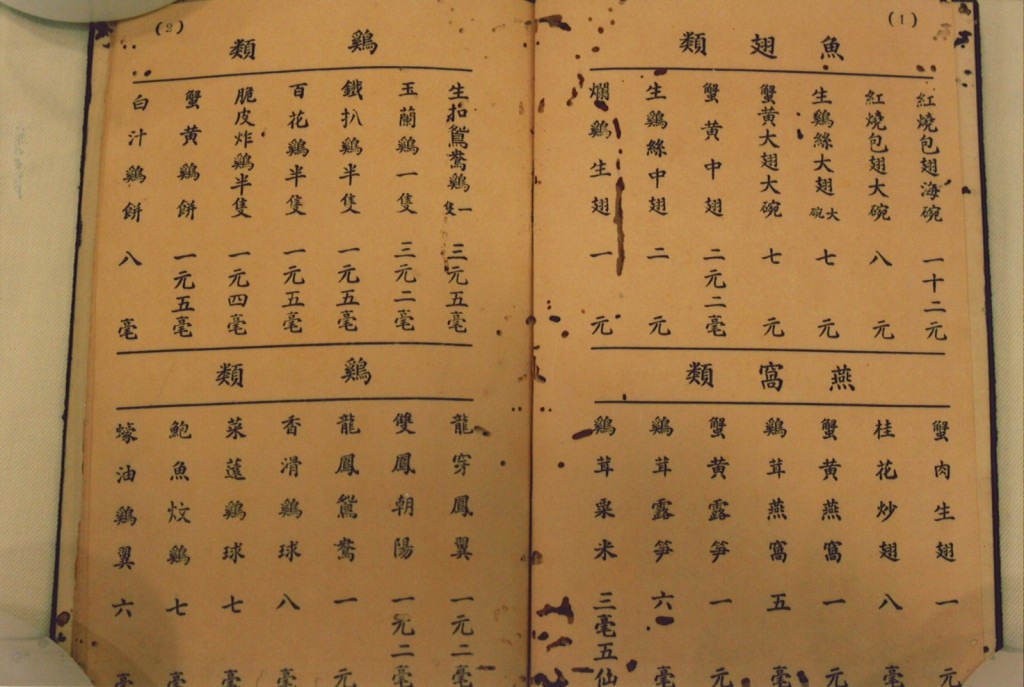 (1)
魚翅類
紅燒包翅海碗 一十二元
紅燒包翅大碗 八元
生鷄絲大翅大碗 七元
蟹黄大翅大碗 七元
蟹黄中翅 二元二毫
生鷄絲中翅 二元
爛鷄生翅 一元
燕窩類
蟹肉生翅 一元
桂花炒翅 八毫
蟹黄燕窩 一元
鷄茸燕窩 五毫
蟹黄露笋 一元
鷄茸露笋 六毫
鷄茸粟米 三毫五仙
(2)
鷄類
生扣鴛鴦鷄一隻 三元五毫
玉蘭鷄一隻 三元二毫
鐵扒鷄半隻 一元五毫
百花鷄半隻 一元五毫
脆皮炸鷄半隻 一元四毫
蟹黄鷄餅 一元五毫
白汁鷄餅 八毫
鷄類
龍穿鳳翼 一元二毫
雙鳳朝陽 一元二毫
龍鳳鴛鴦 一元
香滑鷄球 八毫
菜薳鷄球 七毫
鮑魚炆鷄 七毫
蠔油鷄翼 六毫